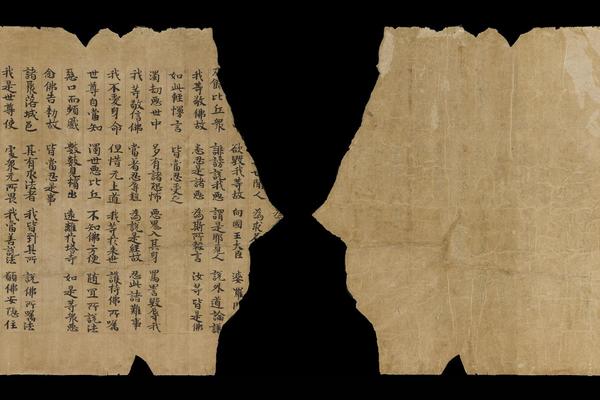 世間人 為求名
欲毀我等故 向國王大臣 婆羅門
及餘比丘眾 誹謗說我惡 謂是耶見人 說外道論議
我等敬佛故 悉忍是諸惡 為斯所輕言 汝等皆是佛
如此輕慢言 皆當忍受之
濁劫惡世中 多有諸恐怖 惡鬼入其身 罵詈毀辱我
我等敬信佛 當著忍辱鎧 為說是經故 忍此諸難事
我不愛身命 但惜无上道 我等於來世 護持佛所囑
世尊自當知 濁世惡比丘 不知佛方便 随宜所說法
惡口而顰蹙 數數見擯出 遠離於塔寺 如是等衆惡
念佛告勅故 皆當忍是事
諸聚落城邑 其有求法者 我皆到其所 說佛所囑法
我是世尊使 處衆无所畏 我當善說法 願佛安隱住